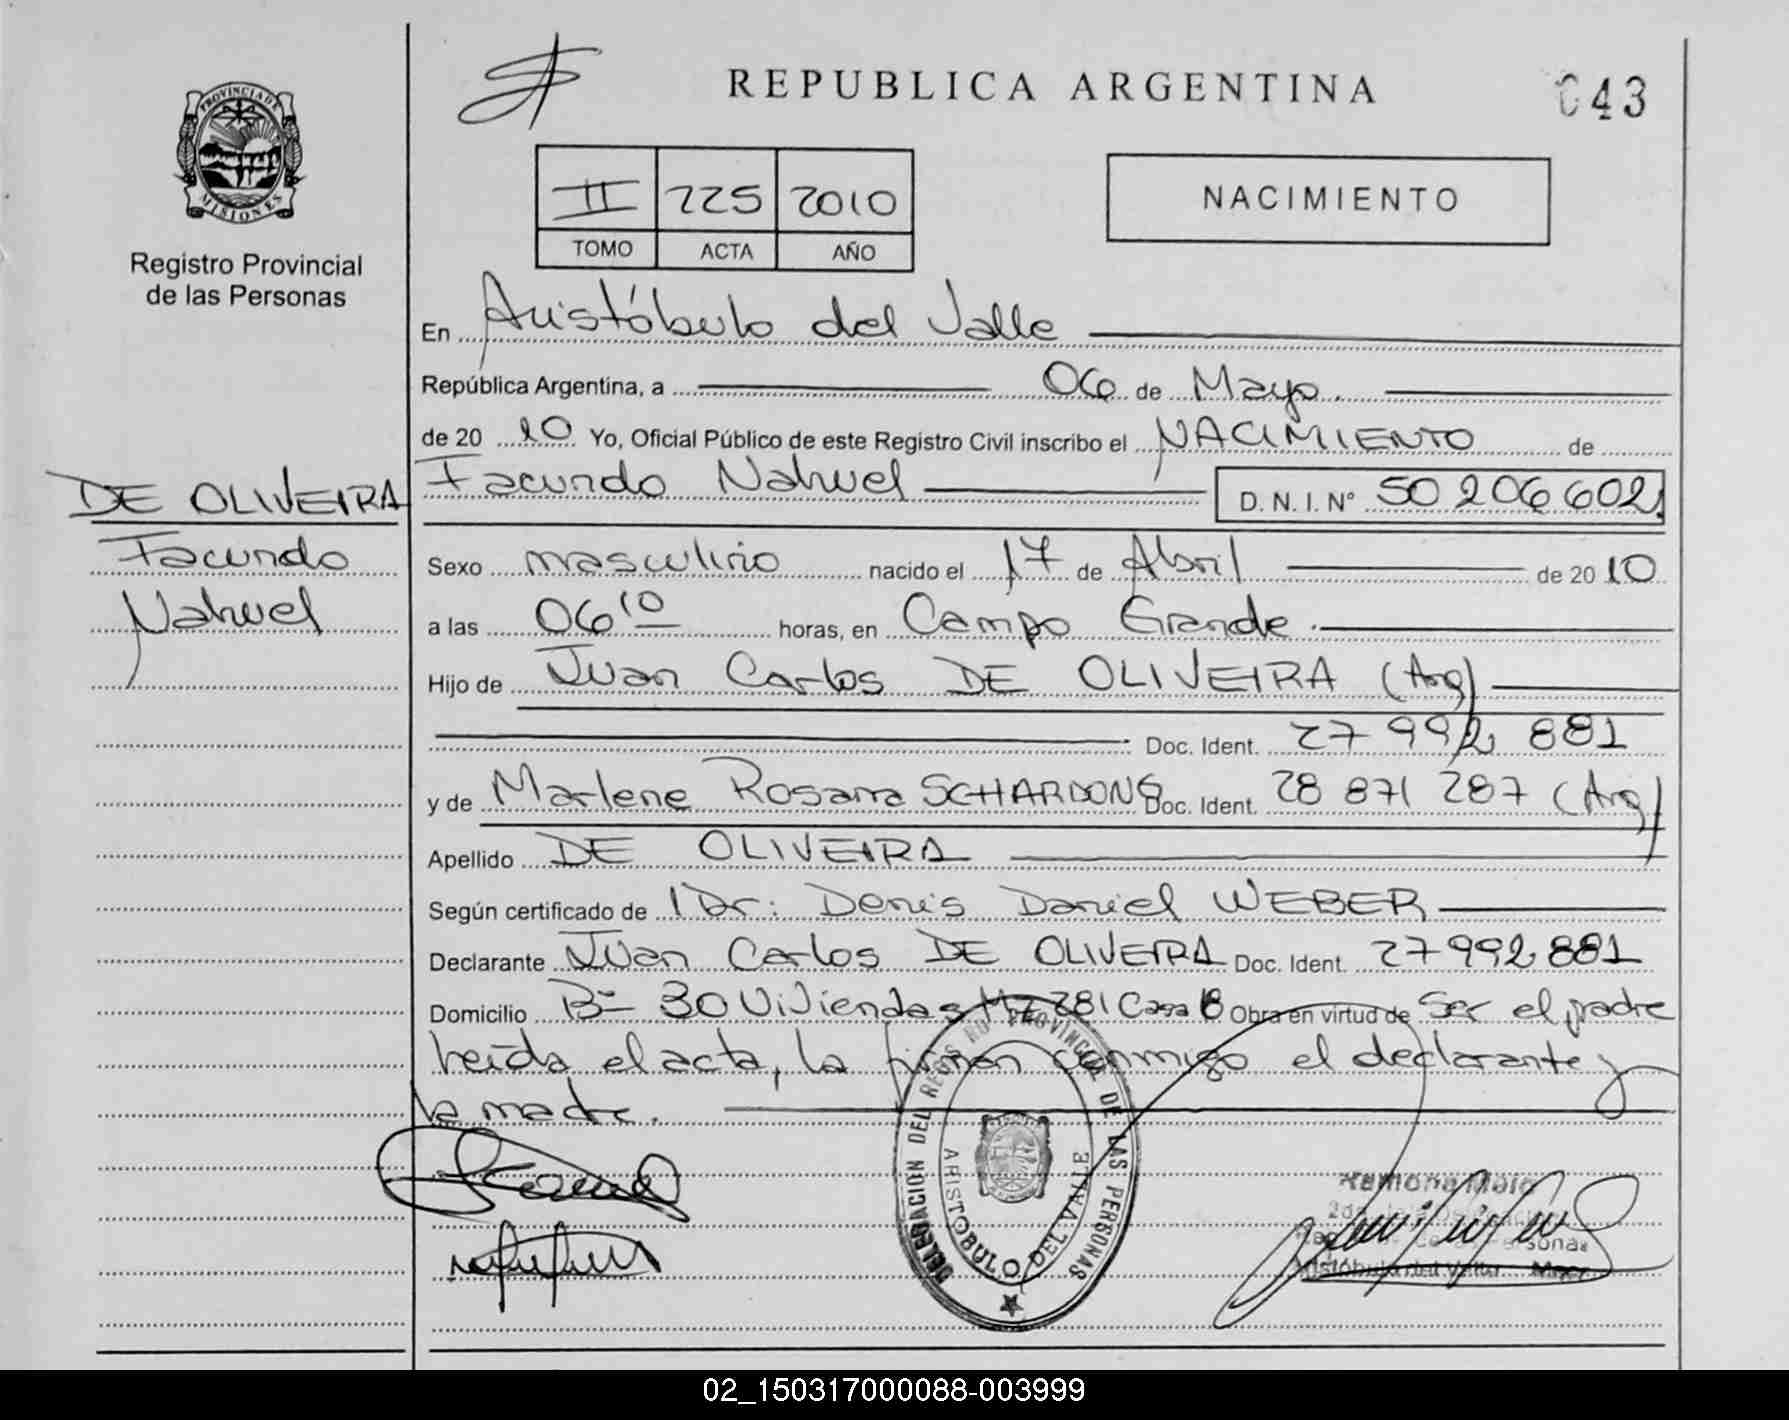 REPUBLICA ARGENTINA
043
PROVINCIA DE
MISIONES
Registro Provincial
de las Personas
II 225 2010
TOMO ACTA AÑO
NACIMIENTO
En Aristóbulo del Valle
República Argentina, a 06 de Mayo.
de 20 10 Yo, Oficial Público de este Registro Civil inscribo el NACIMIENTO de
Facundo Nahuel D. N. I. N° 50 206 602
DE OLIVEIRA
Facundo
Nahuel
Sexo masculino nacido el 17 de Abril de 20 10
a las 06 10 horas, en Campo Grande.
Hijo de Juan Carlos DE OLIVEIRA (Arg)
Doc. Ident. 27 992 881
y de Marlene Rosana SCHARDONG Doc. Ident. 28 871 287 (Arg)
Apellido DE OLIVEIRA
Según certificado de Dr: Denis Daniel WEBER
Declarante Juan Carlos DE OLIVEIRA Doc. Ident. 27 992 881
Domicilio B° 30 Viviendas Mz 281 Casa 18 Obra en virtud de Ser el padre
Leída el acta, la firman conmigo el declarante y
la madre.
DELEGACION DEL REGISTRO PROVINCIAL DE LAS PERSONAS
ARISTOBULO DEL VALLE
Ramona
Aristóbulo del Valle
02_150317000088-003999